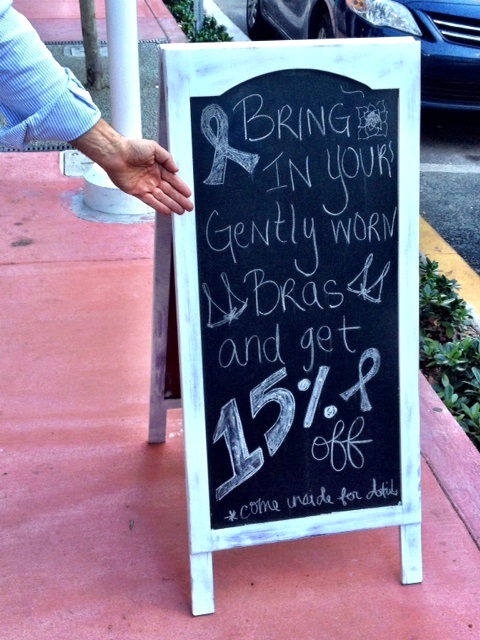 BRING
IN YOUR
Gently WORN
Bras
and get
15%
off
*come inside for details